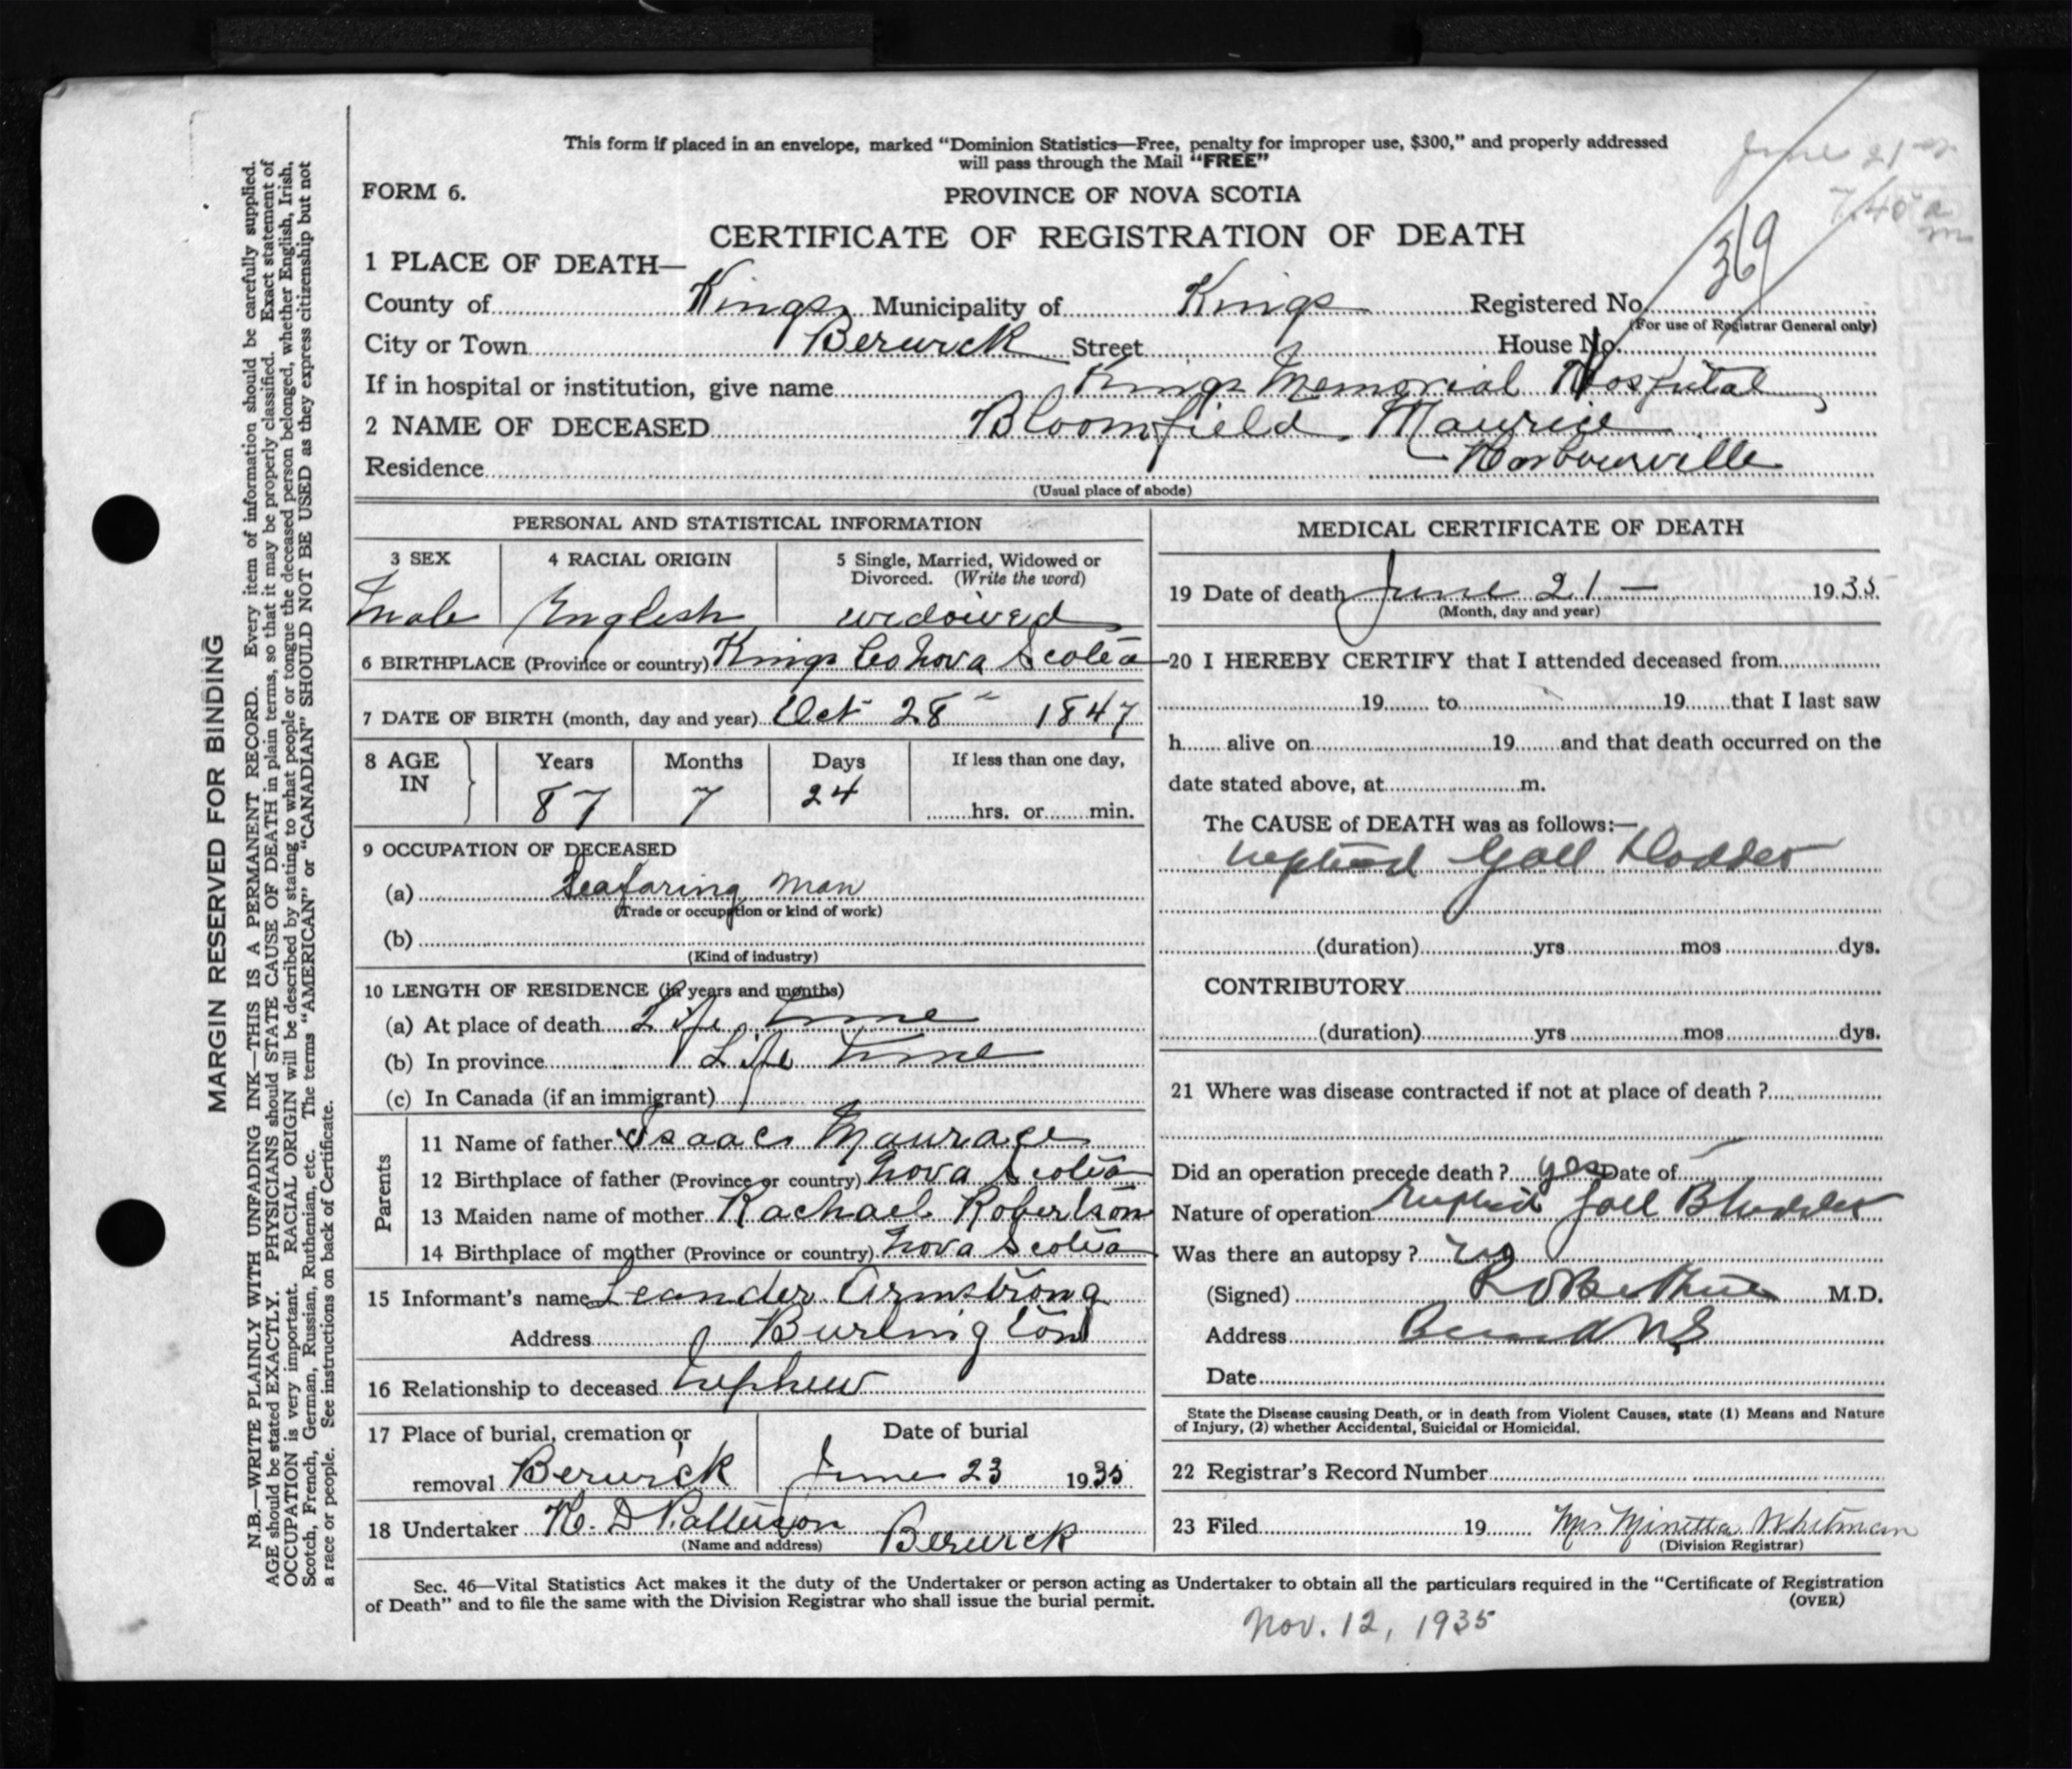 This form if placed in an envelope, marked “Dominion Statistics—Free, penalty for improper use, $300,” and properly addressed
will pass through the Mail “FREE”
June 21st
7.40 a
m
FORM 6.
PROVINCE OF NOVA SCOTIA
CERTIFICATE OF REGISTRATION OF DEATH
369
1 PLACE OF DEATH—
County of Kings Municipality of Kings Registered No.
(For use of Registrar General only)
City or Town Berwick Street House No.
If in hospital or institution, give name Kings Memorial Hospital
2 NAME OF DECEASED Bloomfield Maurice
Residence Harbourville
(Usual place of abode)
PERSONAL AND STATISTICAL INFORMATION
3 SEX 4 RACIAL ORIGIN 5 Single, Married, Widowed or
Divorced. (Write the word)
Male English widowed
6 BIRTHPLACE (Province or country) Kings Co Nova Scotia
7 DATE OF BIRTH (month, day and year) Oct 28th 1847
8 AGE IN Years Months Days If less than one day,
87 7 24 hrs. or min.
9 OCCUPATION OF DECEASED
(a) Seafaring man
(Trade or occupation or kind of work)
(b)
(Kind of industry)
10 LENGTH OF RESIDENCE (in years and months)
(a) At place of death Life time
(b) In province Life time
(c) In Canada (if an immigrant)
Parents
11 Name of father Isaac Maurage
12 Birthplace of father (Province or country) Nova Scotia
13 Maiden name of mother Rachael Robertson
14 Birthplace of mother (Province or country) Nova Scotia
15 Informant's name Leander Armstrong
Address Burlington
16 Relationship to deceased nephew
17 Place of burial, cremation or Date of burial
removal Berwick June 23 1935
18 Undertaker H. D Patterson Berwick
(Name and address)
MEDICAL CERTIFICATE OF DEATH
19 Date of death June 21 — 1935
(Month, day and year)
20 I HEREBY CERTIFY that I attended deceased from
19 to 19 that I last saw
h alive on 19 and that death occurred on the
date stated above, at m.
The CAUSE of DEATH was as follows:—
Gall
(duration) yrs mos dys.
CONTRIBUTORY
(duration) yrs mos dys.
21 Where was disease contracted if not at place of death ?
Did an operation precede death ? yes Date of
Nature of operation Gall Bladder
Was there an autopsy ? no
(Signed) M.D.
Address NS
Date
State the Disease causing Death, or in death from Violent Causes, state (1) Means and Nature
of Injury, (2) whether Accidental, Suicidal or Homicidal.
22 Registrar's Record Number
23 Filed 19 Mrs Minetta Whitman
(Division Registrar)
Sec. 46—Vital Statistics Act makes it the duty of the Undertaker or person acting as Undertaker to obtain all the particulars required in the “Certificate of Registration
of Death” and to file the same with the Division Registrar who shall issue the burial permit. (OVER)
Nov. 12, 1935
MARGIN RESERVED FOR BINDING
N.B.—WRITE PLAINLY WITH UNFADING INK—THIS IS A PERMANENT RECORD. Every item of information should be carefully supplied.
AGE should be stated EXACTLY. PHYSICIANS should STATE CAUSE OF DEATH in plain terms, so that it may be properly classified. Exact statement of
OCCUPATION is very important. RACIAL ORIGIN will be described by stating to what people or tongue the deceased person belonged, whether English, Irish,
Scotch, French, German, Russian, Ruthenian, etc. The terms “AMERICAN” or “CANADIAN” SHOULD NOT BE USED as they express citizenship but not
a race or people. See instructions on back of Certificate.